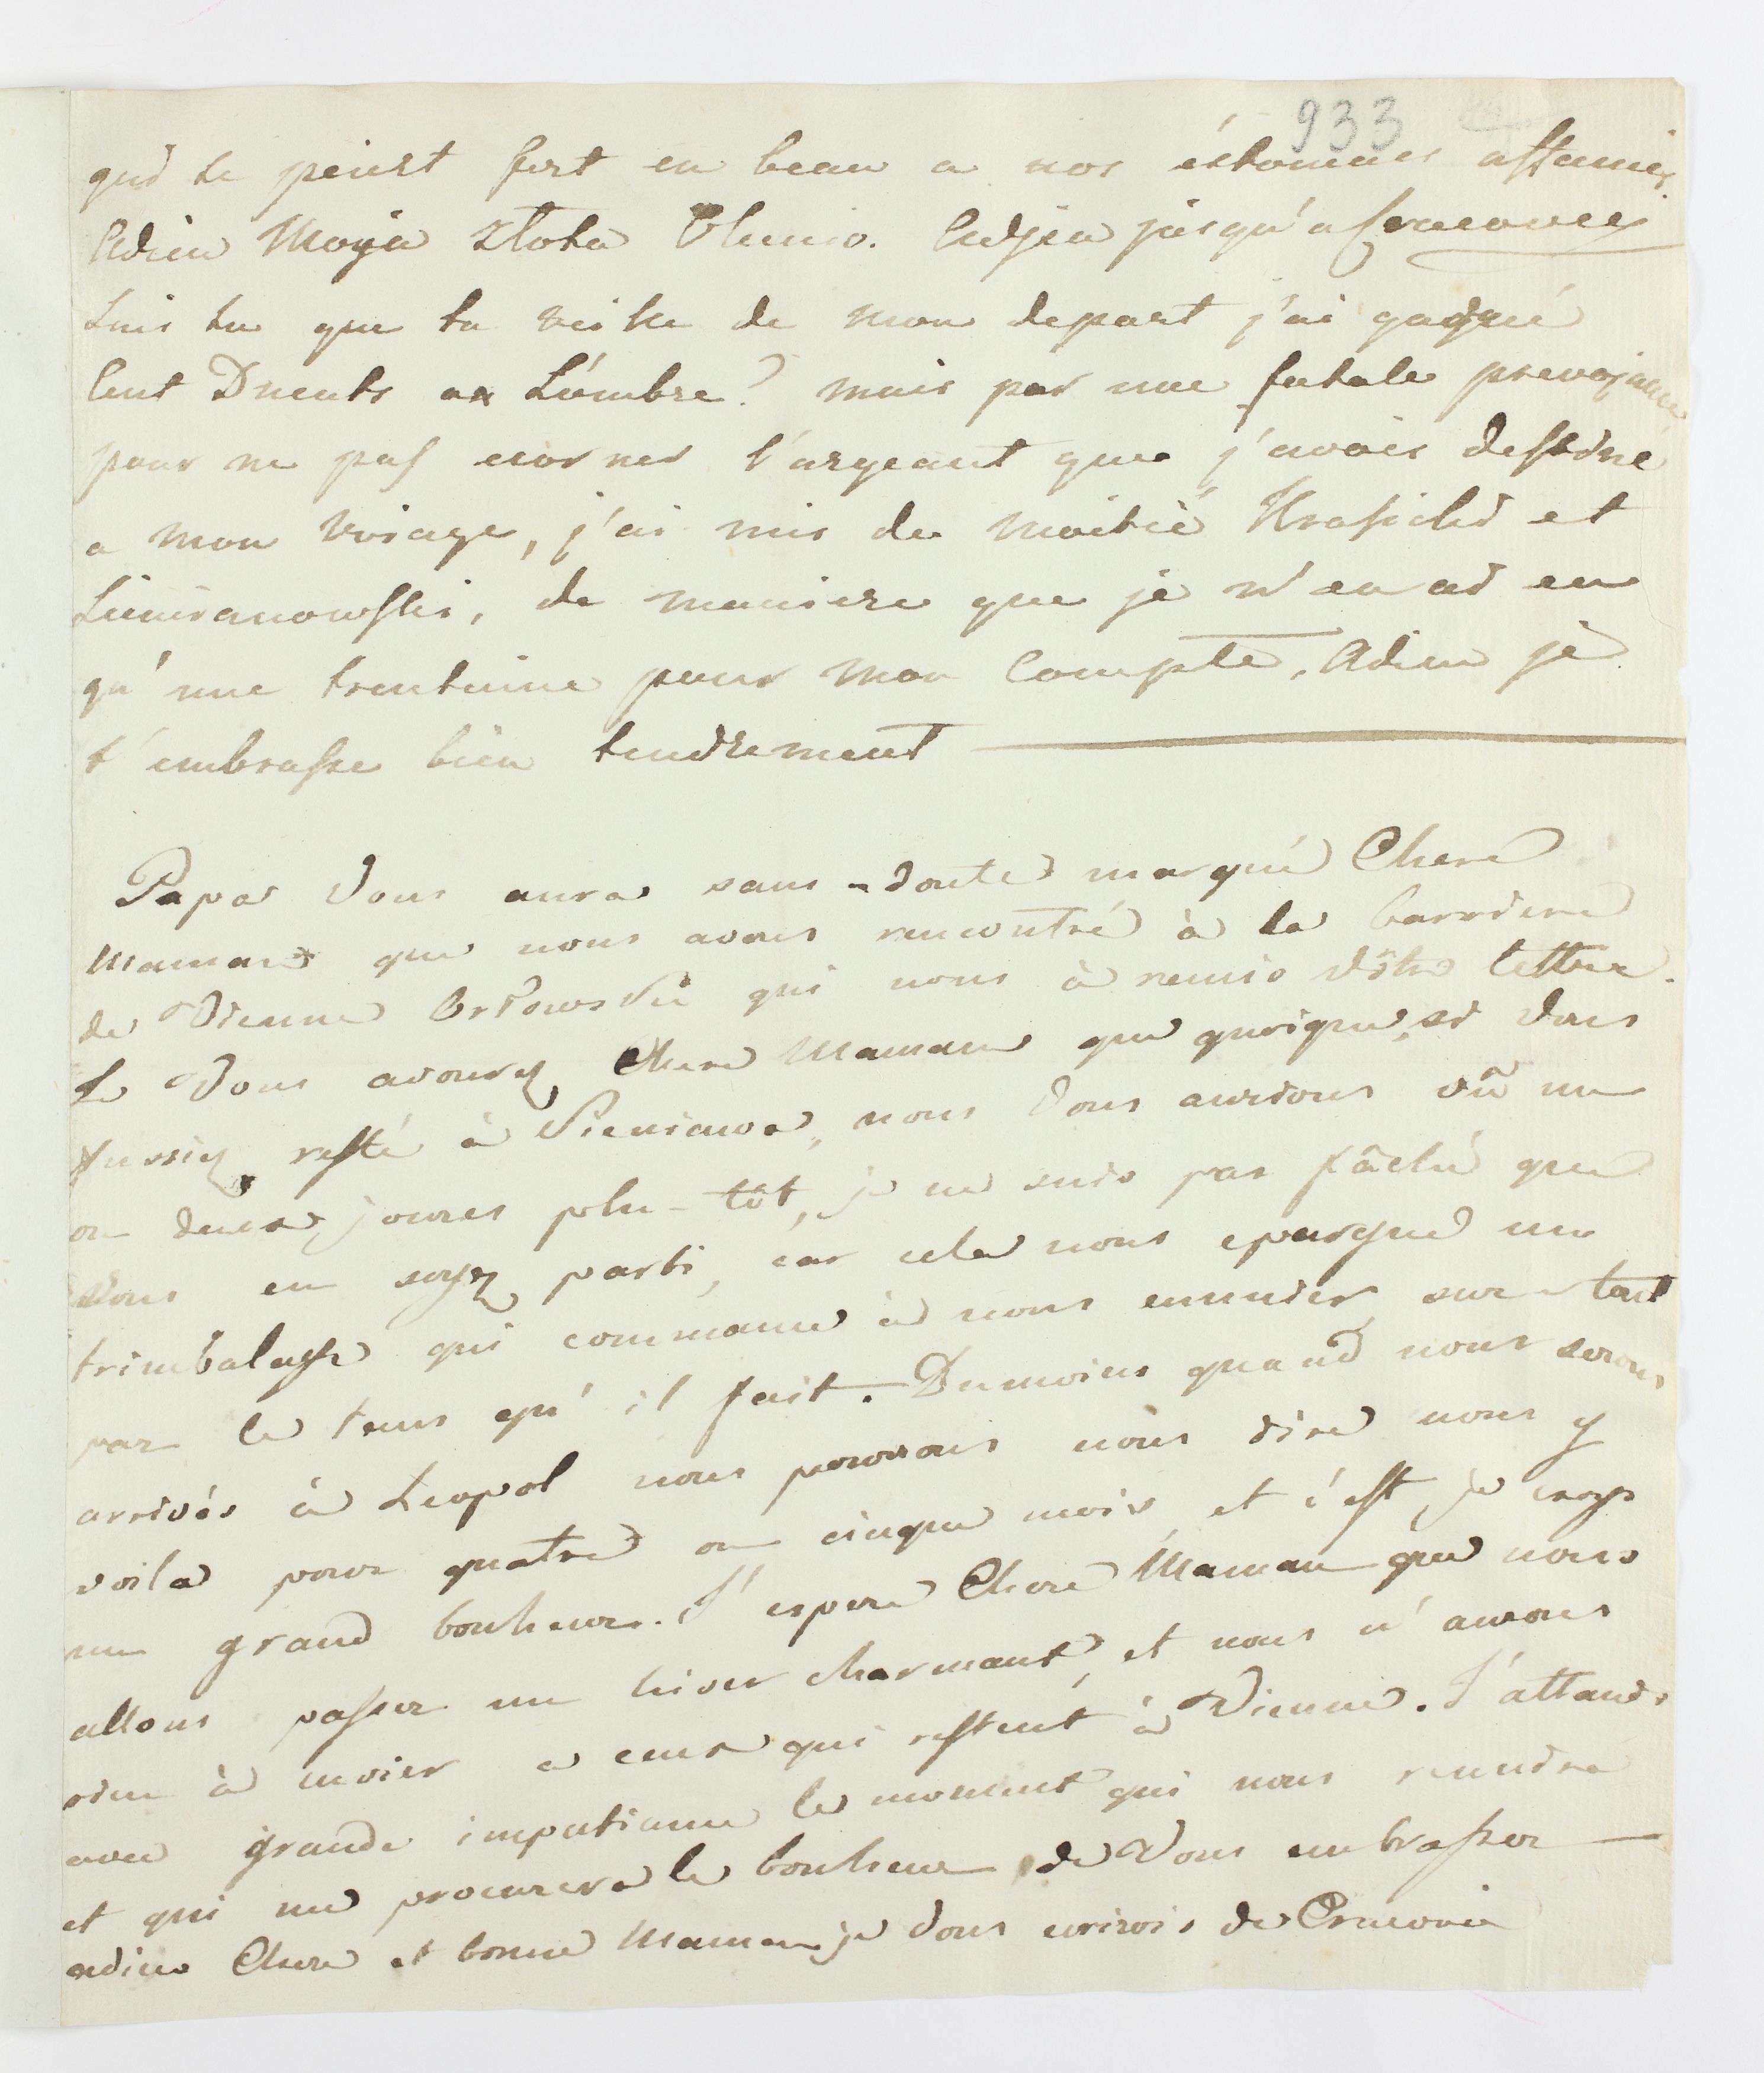 933
qui se peint fort en beau a nos éstomacs affamés.
Adieu Moja złota Olunio. Adjeu jusqu'a Cracovie
Sais tu que la veille de mon depart j'ai gagné
Cent Ducats a L'ombre? mais par une fatale prevojance
pour ne pas ecorner l'argeant que j'avois destiné
a mon voiage, j'ai mis de moitié Krasicki et
Siemianowski, de maniere que je n'en ai eu
qu'une trentaine pour mon Compte. Adieu je
t'embrasse bien tendrement
Papa Vous aura sans-doute marqué Chere
Maman que nous avons rencontré à la barriere
de Vienne Orłowski qui nous à remis Vôtre lettre.
Je Vous avoure Chere Maman que quoique, si Vous
fussiez resté à Sieniawa, nous Vous aurions vû un
ou deux jours plu-tôt, je ne suis pas fâché que
Vous en soyez parti, car cela nous epargne un
trimbalage qui commance à nous ennuier sur-tout
par le tems qu'il fait. Dumoins quand nous serons
arrivés à Leopol nous pourrons nous dire nous y
voila pour quatre ou cinque mois et c'est, je croys
un grand bonheur. J'espere Chere Maman que nous
allons passer un hiver charmant, et nous n'aurons
rien à envier a ceux qui restent à Vienne. J'attands
avec grande impatiance le moment qui nous reunira
et qui me procurera le bonheur de Vous embrasser
adieu Chere et bonne Maman je Vous ecrirois de Cracovie